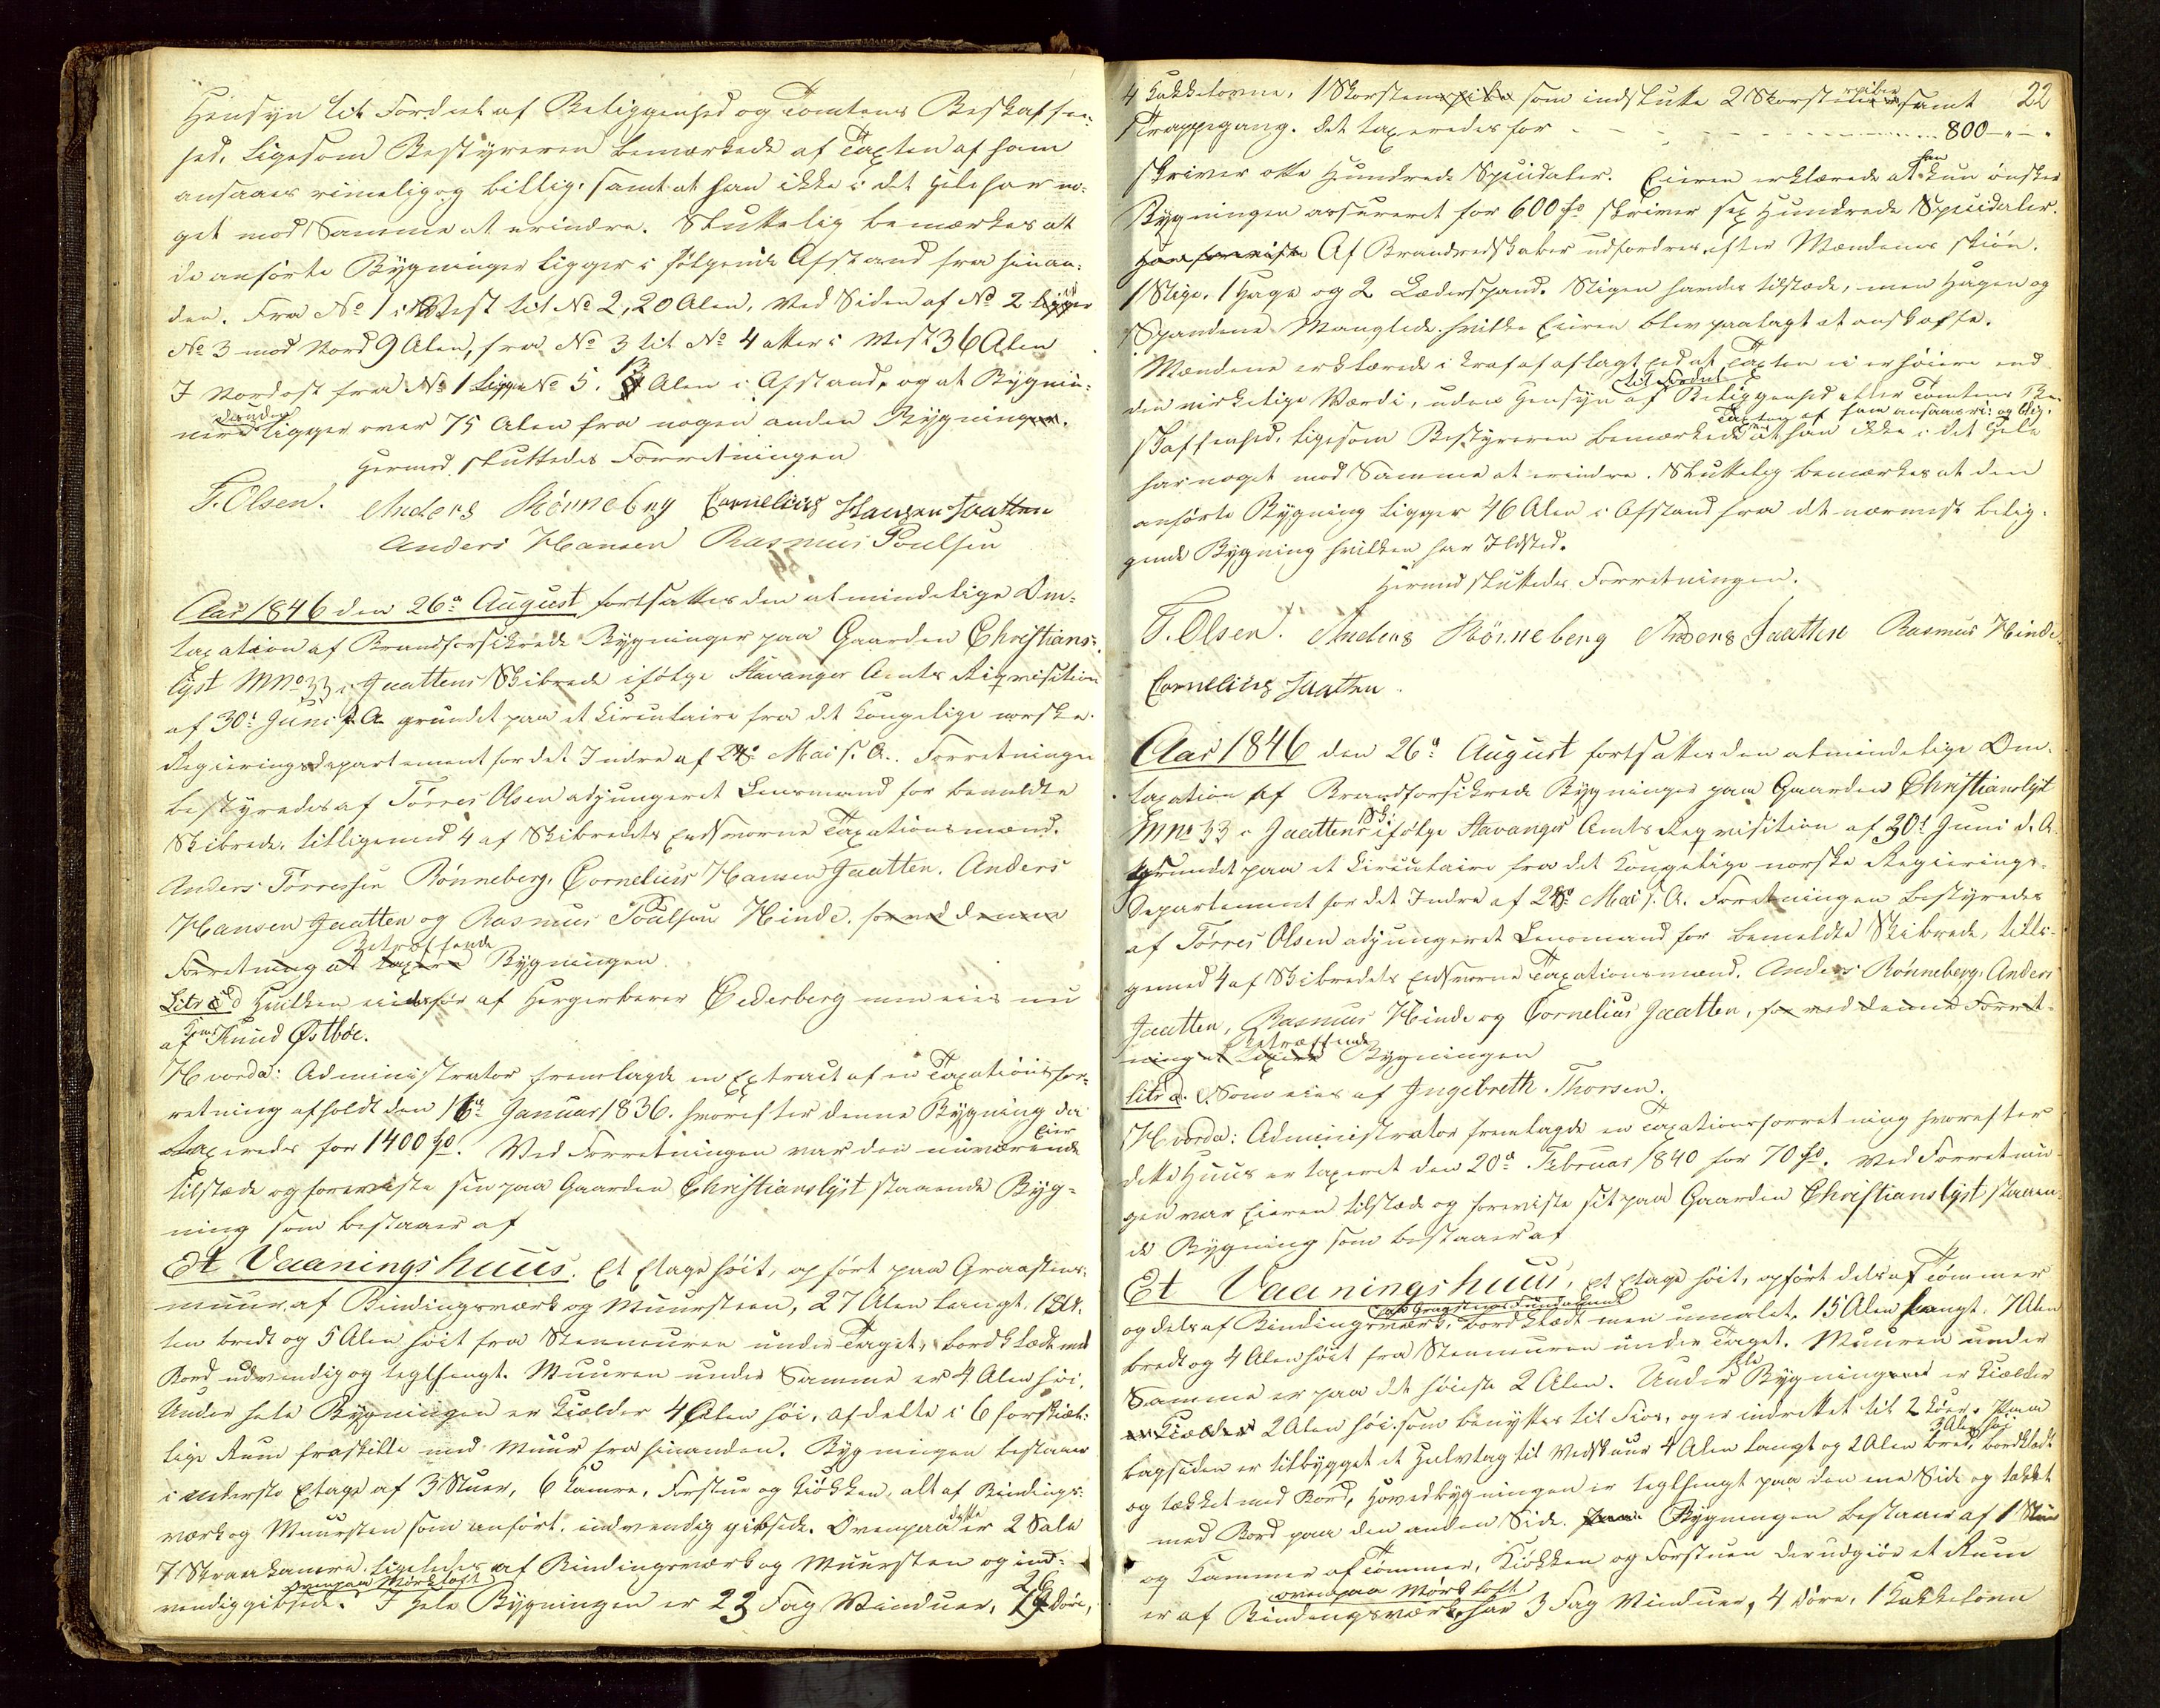 Hensyn til Fordeel af Beliggenhed og Tomtens Beskaffen-
hed, ligesom Bestyreren bemærkede at Taxten af ham
ansaaes rimelig og billig, samt at han ikke i det Hele har no-
get mod Samme at erindre. Sluttelig bemærkes at
de anførte Bygninger ligger i følgende Afstand fra hinan-
den. Fra No 1 i Vest til No 2, 20 Alen, ved Siden af No 2 ligger
No 3 mod Nord 9 Alen, fra No 3 til No 4 atter i Vest 36 Alen
I Nordost fra No 1 ligger No 5. 13 Alen i Afstand, og at Bygnin-
gerne desuden ligger over 75 Alen fra nogen anden Bygning.
Hermed sluttedes Forretningen
T. Olsen. Anders Rønneberg Cornelius Hansen Jaatten
Anders Hansen Rasmus Poulsen
Aar 1846 den 26de August fortsattes den almindelige Om-
taxation af Brandforsikrede Bygninger paa Gaarden Christians-
lyst MNo 33 i Jaattens Skibrede ifølge Stavanger Amts Reqvisition
af 30te Juni d. A. grundet paa et Circulaire fra det Kongelige norske
Regjeringsdepartement for det Indre af 28de Mai s. A. Forretningen
bestyredes af Tørres Olsen adjungeret Lensmand for bemeldte
Skibrede, tilligemed 4 af Skibredets Eedsvorne Taxationsmænd.
Anders Tørressen Rønneberg, Cornelius Hansen Jaatten, Anders
Hansen Jaatten og Rasmus Poulsen Hinde, for ved denne
Forretning at taxere Betræffende Bygningen
Litr d Hvilken eiedes før af Hergerberer Cederberg men eies nu
af Knud Østbøe.
Hvorda: Administrator fremlagde en Extract af en Taxationsfor-
retning afholdt den 16de Januar 1836, hvorefter denne Bygning da
taxeredes for 1400 Spd. Ved Forretningen var den nuværende Eier
tilstæde og foreviste sin paa Gaarden Christianslyst staaende Byg-
ning som bestaaer af
Et Vaaningshuus. Et Etage høit, opført paa Graasteens-
muur, af Bindingsværk og Muursteen, 27 Alen langt, 18 A-
len bredt og 5 Alen høit fra Steenmuren under Taget, bordklædt med
Bord udvendig og teglhengt. Muuren under Samme er 4 Alen høi,
Under hele Bygningen er Kjælder 4 Alen høi, afdelte i 6 forskjæl-
lige Rum fraskilte med Muur fra hinanden. Bygningen bestaaer
i nederste Etage af 3 Stuer, 6 Kamre, Forstue og Kjøkken, alt af Bindings-
værk og Muursten som anført, indvendig gibsede. Ovenpaa dette er 2 Sale
7 Straakamre ligeledes af Bindingsværk og Muursten og ind-
vendig gibsede. ovenpaa Mørkloft I Hele Bygningen er 23 Fag Vinduer, 26 Døre,
22
4 Kakkelovne, 1 Skorsteen som indslutte 2 Skorsteenspiber samt
Trappegang. Det taxeredes for 800 - " - "
skriver otte Hundrede Speciedaler. Eieren erklærede at han kun ønsker
Bygningen assureret for 600 Spd skriver sex Hundrede Speciedaler.
Af Brandredskaber udfordres efter Mændenes Skjøn.
1 Stige, 1 Hage og 2 Læderspand. Stigen havdes tilstæde, men Hagen og
Spandene Manglede, hvilke Eieren blev paalagt at anskaffe.
Mændene erklærede i Kraft af aflagt Eed at Taxten ei er høiere end
den virkelige Værdi, uden Hensyn til Fordeel af Beliggenhed eller Tomtens Be-
skaffenhed, ligesom Bestyreren bemærkede Taxten af ham ansaaes ri: og blig: at han ikke i det Hele
har noget mod Samme at erindre. Sluttelig bemærkes at den
anførte Bygning ligger 46 Alen i Afstand fra det nærmest belig-
gende Bygning hvilken har Ildsted.
Hermed sluttedes Forretningen.
T. Olsen. Anders Rønneberg Anders Jaatten Rasmus Hinde
Cornelius Jaatten.
Aar 1846 den 26de August fortsattes den almindelige Om-
taxation af Brandforsikrede Bygninger paa Gaarden Christianslyst
MNo 33 i Jaattens Sk: ifølge Stavanger Amts Reqvisition af 30te Juni d. A.
grundet paa et Circulaire fra det Kongelige norske Regjerings-
Departement for det Indre af 28de Mai s. A. Forretningen bestyredes
af Tørres Olsen adjungeret Lensmand for bemeldte Skibrede, tilli-
gemed 4 af Skibredets Eedsvorne Taxationsmænd. Anders Rønneberg, Anders
Jaatten, Rasmus Hinde og Cornelius Jaatten, for ved denne Forret-
ning at taxere Betræffende Bygningen
Litr a. Som eies af Ingebreth Thorsen.
Hvorda: Administrator fremlagde en Taxationsforretning hvorefter
dette Huus er taxeret den 20de Februar 1840 for 70 Spd. Ved Forretnin-
gen var Eieren tilstæde og foreviste sit paa Gaarden Christianslyst staaen-
de Bygning som bestaaer af
Et Vaaningshuus, et Etage høit, opført dels af Tømmer
og dels af Bindingsværk, paa Graasteens Fundament bordklædt men umalet, 15 Alen langt, 7 Alen
bredt og 4 Alen høit fra Steenmuren under Taget. Muuren under
Samme er paa det høieste 2 Alen. Under hele Bygningen er Kjælder
2 Alen høi som benyttes til Fjøs, og er indrettet til 2 Kjøer. Paa
bagsiden er tilbygget et Halvtag til Vedskuur 4 Alen langt og 2 Alen bred, 3 Alen høi bordklædt
og tækket med Bord, Hovedbygningen er teglhengt paa den ene Side og tækket
med Bord paa den anden Side. Bygningen bestaaer af 1 Stue
og Kammer af Tømmer, Kjøkken og Forstuen derudgjør et Rum
er af Bindingsværk, ovenpaa Mørkloft har 3 Fag Vinduer, 4 Døre, 1 Kakkelovn